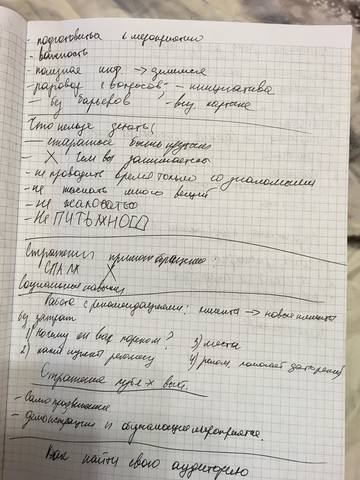 - подготовиться к мероприятию
- важность
- полезная инф. → делимся
- разговор с вопросов - инициатива
- без барьеров
Что нельзя делать!
- стараться быть крутыми
- X чем вы занимаетесь
- не проводить время только со знакомыми
- не таскать много вещей
- не жаловаться
- НЕ ПИТЬ МНОГО
Стратегии прямого обращения
СПАМ X
Социальные навыки
Работа с рекомендателями: клиенты → новые клиенты
без затрат
1) Почему он вас пореком? 3) места
2) какой получит рекоменд 4) реком. помогает
Стратегия публ-х выст.
- Самопродвижение
- демонстрации и обучающие мероприятия.
Как найти свою аудиторию